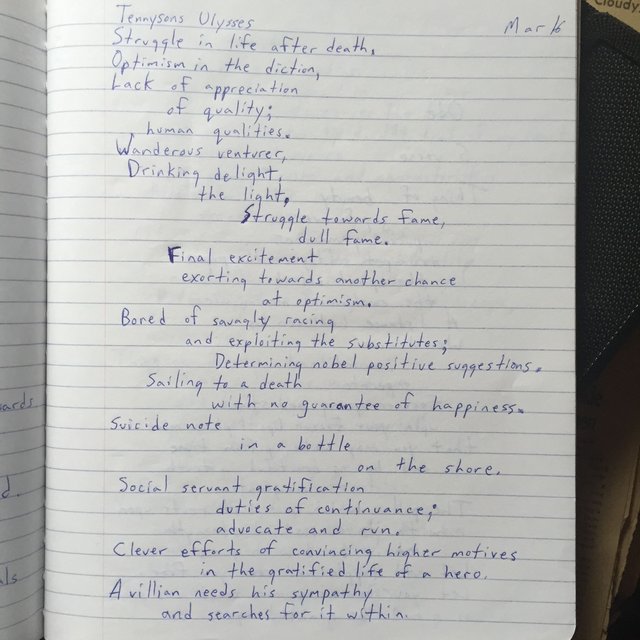 Tennysons Ulysses
Mar 16
Struggle in life after death,
Optimism in the diction,
Lack of appreciation
of quality;
human qualities.
Wanderous venturer,
Drinking delight,
the light,
Struggle towards fame,
dull fame.
Final excitement
exorting towards another chance
at optimism.
Bored of savagly racing
and exploiting the substitutes;
Determining nobel positive suggestions.
Sailing to a death
with no guarantee of happiness.
Suicide note
in a bottle
on the shore.
Social servant gratification
duties of continuance;
advocate and run.
Clever efforts of convincing higher motives
in the gratified life of a hero.
A villian needs his sympathy
and searches for it within.
Cloudy
ards
d.
als